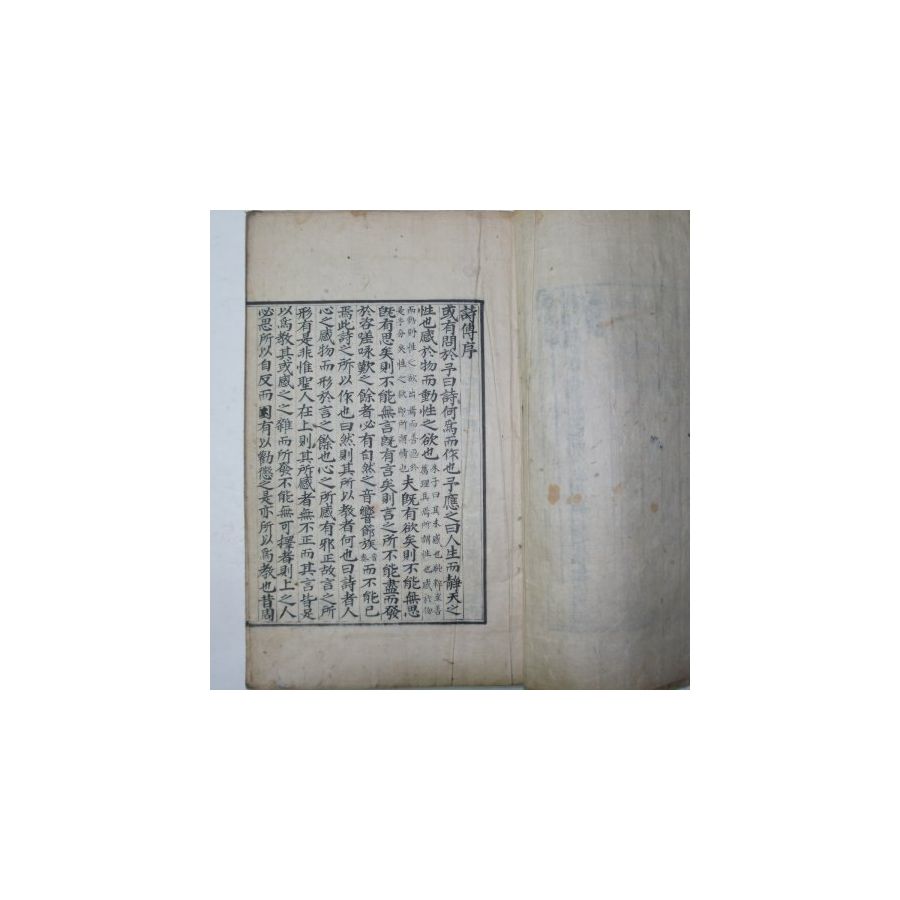 詩傳序
或有問於予曰詩何爲而作也予應之曰人生而靜天之
性也感於物而動性之欲也朱子曰其未感也純粹至善萬理具焉所謂性也感於物
而動則性之欲出焉而善惡於是乎分矣性之欲卽所謂情也夫旣有欲矣則不能無思
旣有思矣則不能無言旣有言矣則言之所不能盡而發
於咨嗟咏歎之餘者必有自然之音響節族音奏而不能已
焉此詩之所以作也曰然則其所以敎者何也曰詩者人
心之感物而形於言之餘也心之所感有邪正故言之所
形有是非惟聖人在上則其所感者無不正而其言皆足
以爲敎其或感之之雜而所發不能無可擇者則上之人
必思所以自反而因有以勸懲之是亦所以爲敎也昔周